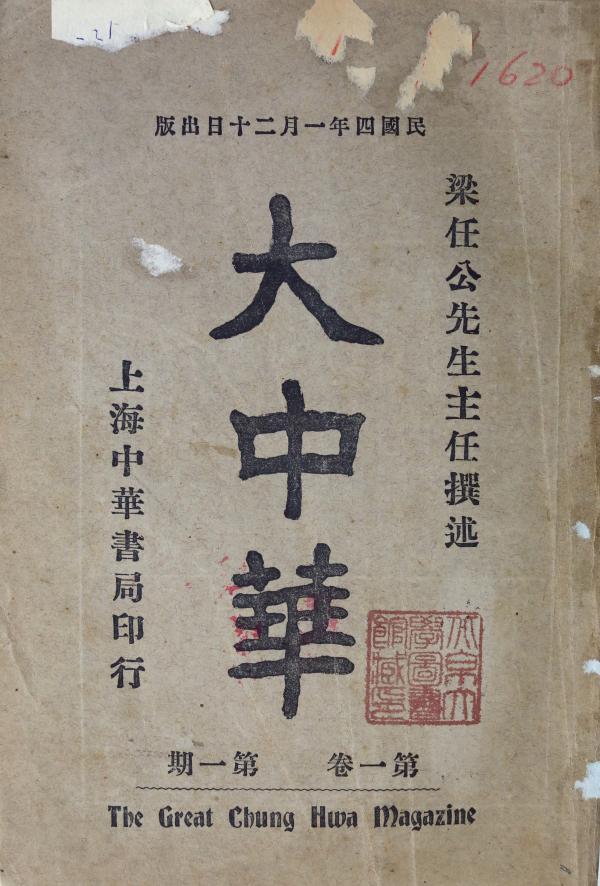 -21
1620
民國四年一月二十日出版
梁任公先生主任撰述
大中華
上海中華書局印行
北京大
學圖書
館藏印
第一卷 第一期
The Great Chung Hwa Magazine